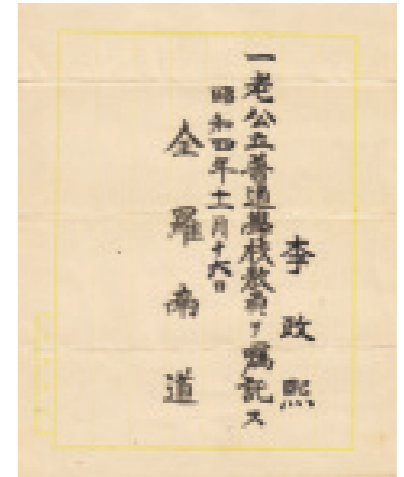 李政熙
一老公立普通學校敎員ヲ囑託ス
昭和四年十二月十六日
全羅南道